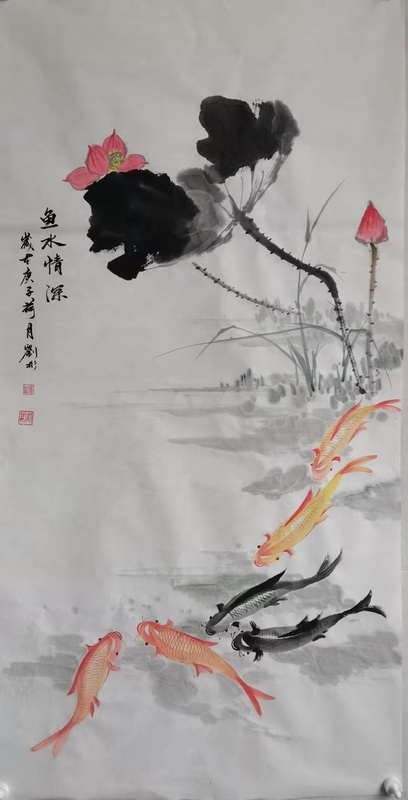 鱼水情深
歲在庚子荷月劉彬